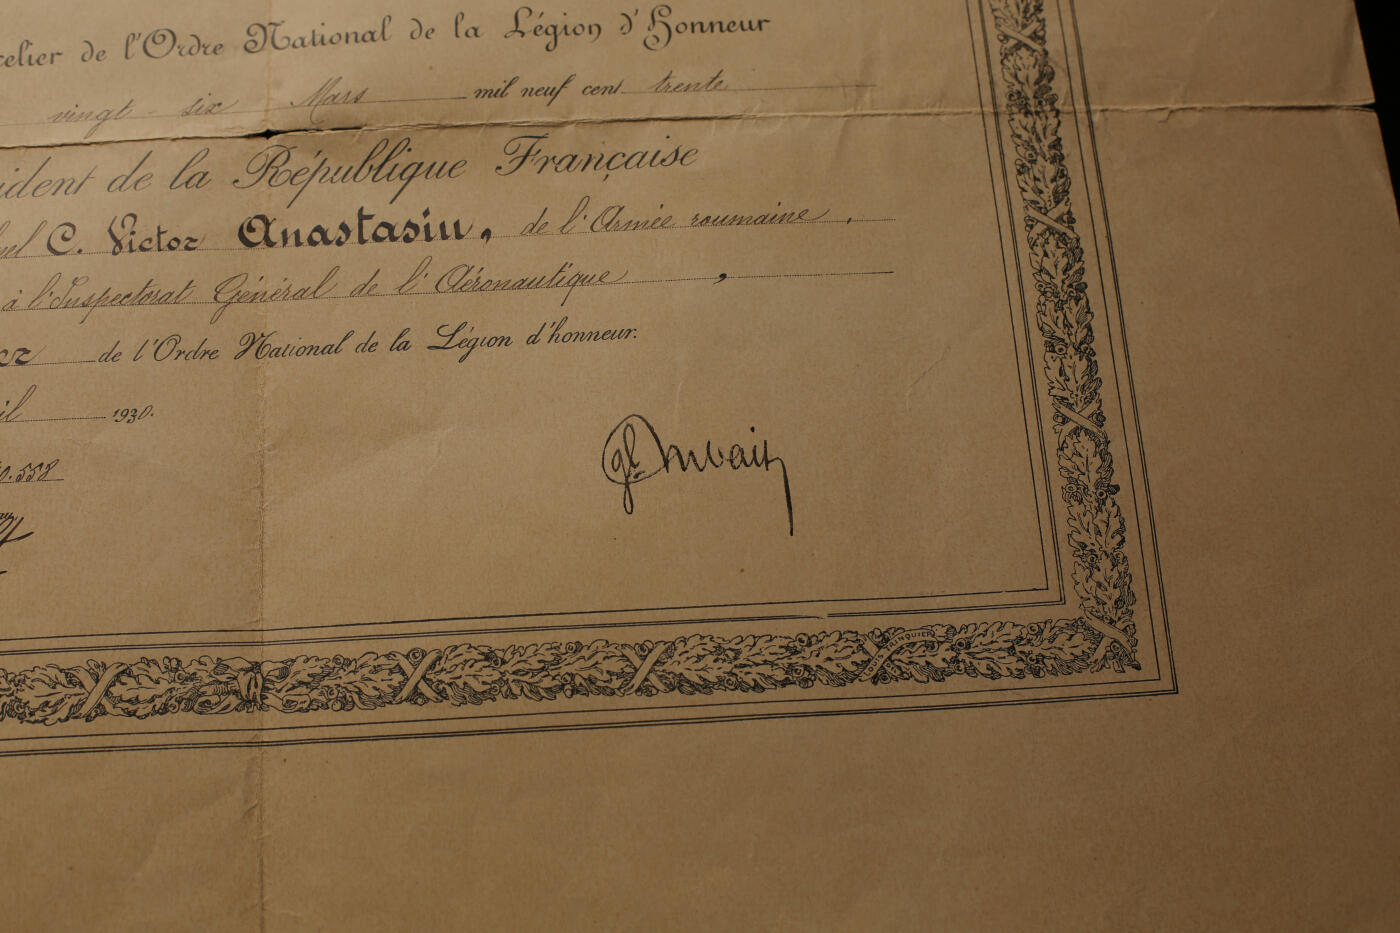 celier de l'Ordre National de la Légion d'Honneur
vingt-six Mars mil neuf cent trente
ident de la République Française
nel C. Victor Anastasiu, de l'Armée roumaine,
à l'Inspectorat Général de l'Aéronautique,
de l'Ordre National de la Légion d'honneur.
il 1930.
0.558
gl Dubail